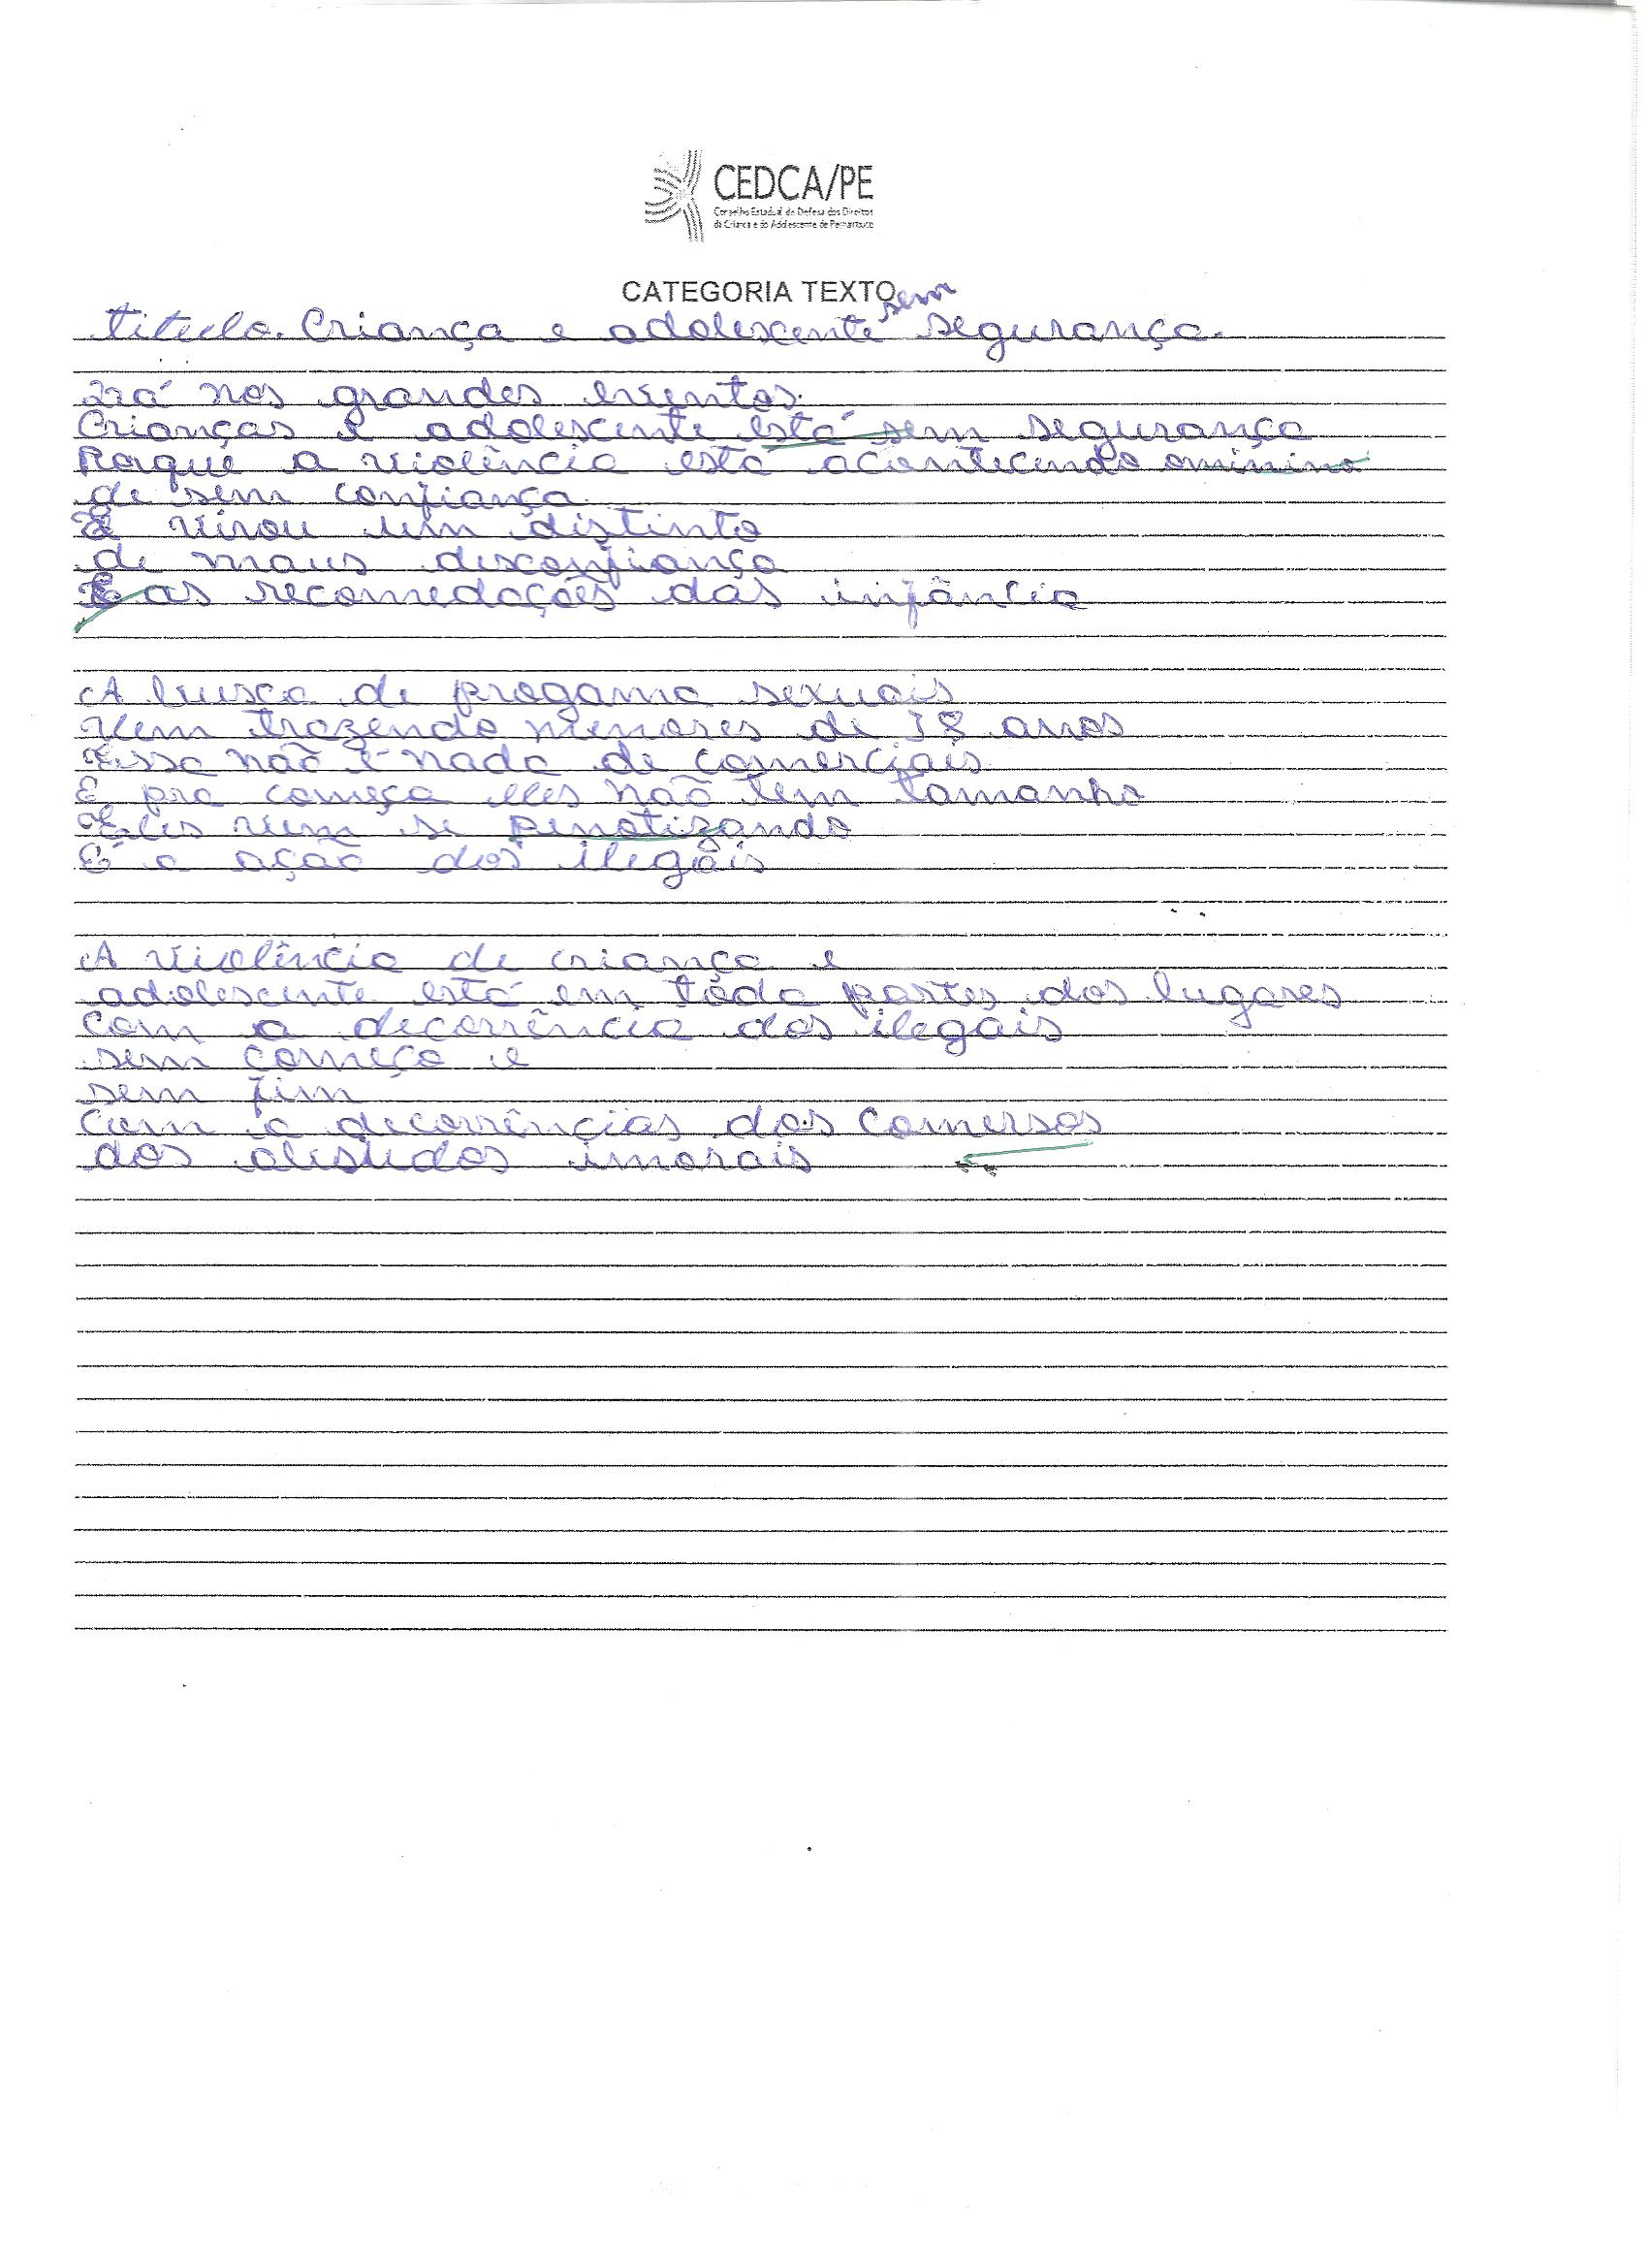 CEDCA/PE
Conselho Estadual de Defesa dos Direitos
da Criança e do Adolescente de Pernambuco
CATEGORIA TEXTO
titulo. Criança e adolescente sem segurança.
nos grandes eventos.
Crianças e adolescente está sem segurança
Porque a violência está acontecendo
de sem confiança.
E virou um distinto
de maus desconfiança
E as recomedações das infância
A busca de progama sexuais
Vem trazendo menores de 18 anos
Essa não é nada de comerciais
E pra começa eles não tem tamanho
Eles vem se penotizando
E a ação dos ilegais
A violência de criança e
adolescente está em toda partes dos lugares
com a decorrência dos ilegáis
sem começo e
sem fim
com a decorrências dos comersos
dos imorais